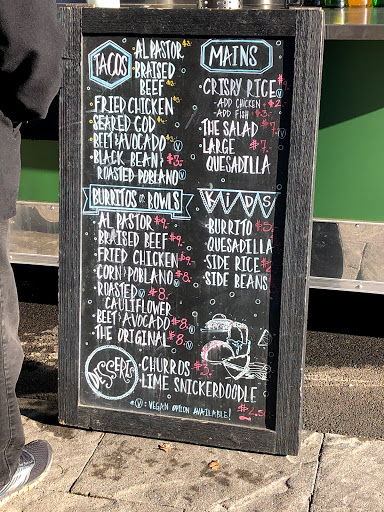 TACOS
AL PASTOR
BRAISED
BEEF
FRIED CHICKEN
SEARED COD
BEET & AVOCADO Ⓥ
BLACK BEAN & $3-
ROASTED POBLANO Ⓥ
BURRITOS OR BOWLS
AL PASTOR $9-
BRAISED BEEF $9-
FRIED CHICKEN $9-
CORN & POBLANO $8-
ROASTED Ⓥ $8-
CAULIFLOWER
BEET & AVOCADO $8- Ⓥ
THE ORIGINAL $8-
DESSERTS
CHURROS $3-
LIME SNICKERDOODLE
$2.50
Ⓥ: VEGAN OPTION AVAILABLE!
MAINS
CRISPY RICE Ⓥ $9-
-ADD CHICKEN + $2-
-ADD FISH + $3-
THE SALAD $7- Ⓥ
LARGE $7-
QUESADILLA
KIDS
BURRITO $3-
QUESADILLA
SIDE RICE $2
SIDE BEANS